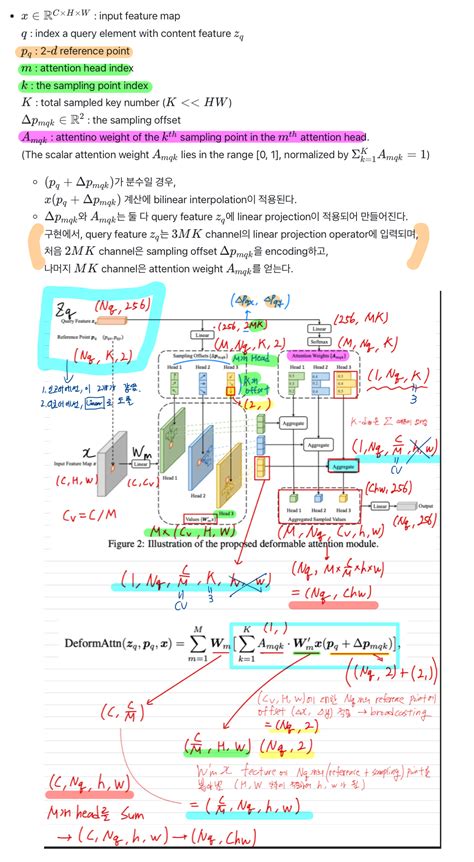 • x ∈ ℝ^{C×H×W} : input feature map
q : index a query element with content feature z_q
p_q : 2-d reference point
m : attention head index
k : the sampling point index
K : total sampled key number (K << HW)
Δp_{mqk} ∈ ℝ² : the sampling offset
A_{mqk} : attentino weight of the k^{th} sampling point in the m^{th} attention head.
(The scalar attention weight A_{mqk} lies in the range [0, 1], normalized by Σ_{k=1}^{K} A_{mqk} = 1)
◦ (p_q + Δp_{mqk})가 분수일 경우,
x(p_q + Δp_{mqk}) 계산에 bilinear interpolation이 적용된다.
◦ Δp_{mqk}와 A_{mqk}는 둘 다 query feature z_q에 linear projection이 적용되어 만들어진다.
구현에서, query feature z_q는 3MK channel의 linear projection operator에 입력되며,
처음 2MK channel은 sampling offset Δp_{mqk}을 encoding하고,
나머지 MK channel은 attention weight A_{mqk}를 얻는다.
Zq (Nq, 256)
Query Feature z_q
Reference Point p_q
(Nq, K, 2)
(256, 2MK)
Linear
(M, Nq, K, 2)
Sampling Offsets {Δp_{mqk}}
M개 Head
Head 1 Head 2 Head 3
K개 offset
(2, )
(256, MK)
Linear
Softmax
(M, Nq, K)
Attention Weights {A_{mqk}}
Head 1 Head 2 Head 3
(1, Nq, K)
3
(1, Nq, C/M, h, w)
CV
x
Input Feature Map x
(C, H, W)
Wm
Linear
(C, Cv)
Cv = C/M
Head 1
Head 2
Head 3
Values {W'_m x}
M×(Cv, H, W)
Aggregate
Aggregate
Aggregate
Head 1 Head 2 Head 3
Aggregated Sampled Values
(M, Nq, Cv, h, w)
(Chw, 256)
Linear
Output
(Nq, 256)
Figure 2: Illustration of the proposed deformable attention module.
(1, Nq, C/M, K, h, w)
CV 3
(Nq, M×C/M×h×w)
= (Nq, Chw)
(1, )
DeformAttn(z_q, p_q, x) = Σ_{m=1}^{M} W_m [Σ_{k=1}^{K} A_{mqk} · W'_m x(p_q + Δp_{mqk})],
((Nq, 2) + (2, ))
(C, C/M)
→ broadcasting
= (Nq, 2)
(C/M, H, W) (Nq, 2)
= (C/M, Nq, h, w)
(C, Nq, h, w)
M개 head를 sum
→ (C, Nq, h, w) → (Nq, Chw)